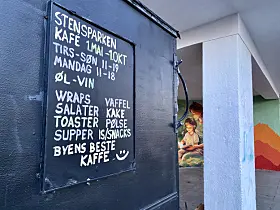 STENSPARKEN
KAFE 1.MAI-1.OKT
TIRS-SØN 11-19
MANDAG 11-18
ØL-VIN
WRAPS VAFFEL
SALATER KAKE
TOASTER PØLSE
SUPPER IS/SNACKS
BYENS BESTE
KAFFE